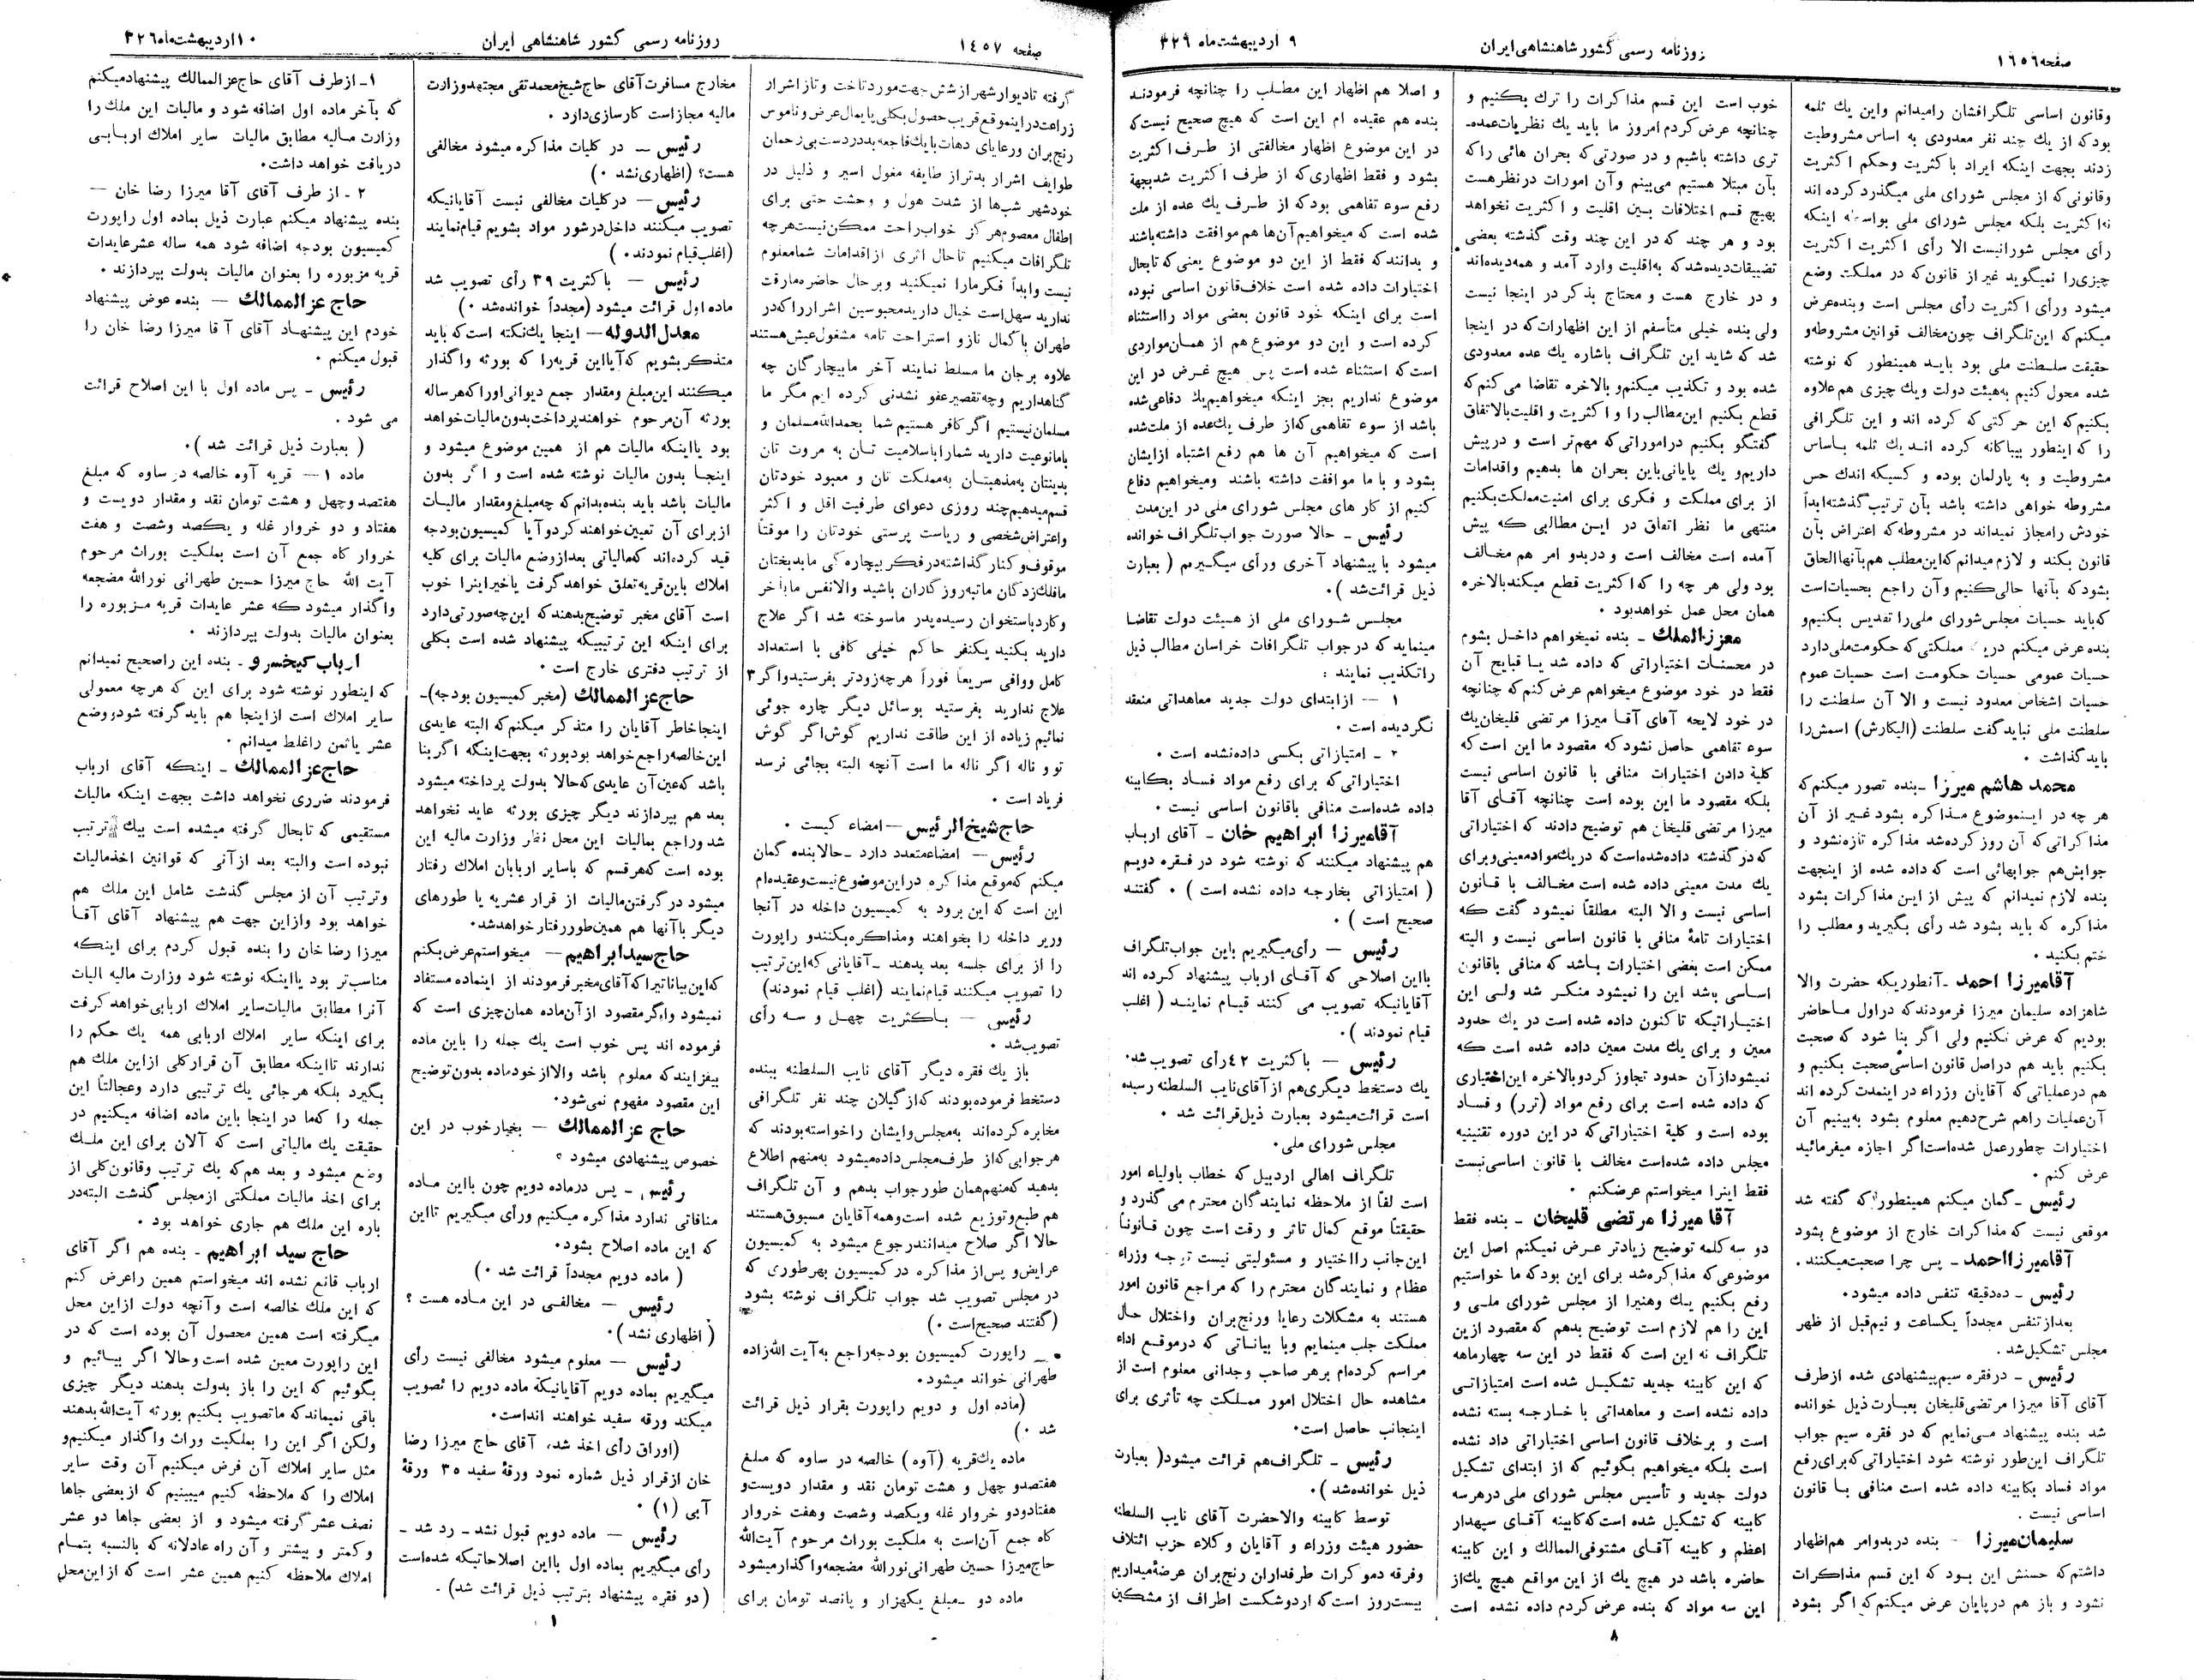 صفحه ١٦٥٦
روزنامه رسمی کشور شاهنشاهی ایران
٩ اردیبهشت ماه ٣٢٩
وقانون اساسی تلگرافشان رامیدانم واین یك ثلمه
بودکه از یك چند نفر معدودی به اساس مشروطیت
زدند بجهت اینکه ایراد باکثریت وحکم اکثریت
وقانونی‌که از مجلس شورای ملی میگذرد کرده اند
نه‌اکثریت بلکه مجلس شورای ملی بواسطه اینکه
رأی مجلس شورانیست الا رأی اکثریت اکثریت
چیزی‌را نمیگوید غیر از قانون‌که در مملکت وضع
میشود ورأی اکثریت رأی مجلس است وبنده‌عرض
میکنم‌که این‌تلگراف چون‌مخالف قوانین مشروطه‌و
حقیقت سلطنت ملی بود بایـد همینطور که نوشته
شده محول کنیم به‌هیئت دولت ویك چیزی هم‌علاوه
بکنیم‌که این حرکتی‌که کرده اند و این تلگرافی
را که اینطور بیباکانه کرده انـد یك ثلمه بـاساس
مشروطیت و به پارلمان بوده و کسیکه اندك حس
مشروطه خواهی داشته باشد بآن ترتیب گذشته‌ابداً
خودش رامجاز نمیداند در مشروطه‌که اعتراض بآن
قانون بکند و لازم میدانم‌که‌این‌مطلب هم‌بآنهاالحاق
بشودکه بآنها حالی‌کنیم وآن راجع بحسیات‌است
که‌باید حسیات مجلس‌شورای ملی‌را تقدیس بکنیم‌و
بنده عرض میکنم در مملکتی که حکومت‌ملی‌دارد
حسیات عمومی حسیات حکومت است حسیات عموم
حسیات اشخاص معدود نیست و الا آن سلطنت را
سلطنت ملی نبایدگفت سلطنت (الیکارش) اسمش‌را
بایدگذاشت .
محمد هاشم میرزا ـ بنده تصور میکنم‌که
هر چه در ایـنموضوع مـذاکره بشود غیـر از آن
مذاکراتی‌که آن روز کرده‌شد مذاکره تازه‌نشود و
جوابش‌هم جوابهائی است که داده شده از اینجهت
بنده لازم نمیدانم که پیش از ایـن مذاکرات بشود
مذاکره که باید بشود شد رأی بگیرید و مطلب را
ختم بکنید .
آقامیرزا احمد ـ آنطوریکه حضرت والا
شاهزاده سلیمان میرزا فرمودندکه دراول مـاحاضر
بودیم که عرض نکنیم ولی اگر بنا شود که صحبت
بکنیم باید هم دراصل قانون اساسی صحبت بکنیم و
هم درعملیاتی‌که آقایان وزراء در اینمدت کرده اند
آن‌عملیات راهم شرح‌دهیم معلوم بشود به‌بینیم آن
اختیارات چطورعمل شده‌است‌اگر اجازه میفرمائید
عرض کنم .
رئیس ـ گمان میکنم همینطور که گفته شد
موقعی نیست که مذاکرات خارج از موضوع بشود
آقامیرزااحمد ـ پس چرا صحبت‌میکنند .
رئیس ـ ده‌دقیقه تنفس داده میشود.
بعدازتنفس مجدداً یکساعت و نیم‌قبل از ظهر
مجلس تشکیل‌شد .
رئیس ـ درفقره سیم‌پیشنهادی شده ازطرف
آقای آقا میرزا مرتضی‌قلیخان بعبـارت ذیل خوانده
شد بنده پیشنهاد مـی‌نمایم که در فقره سیم جواب
تلگراف این‌طور نوشته شود اختیاراتی که‌برای‌رفع
مواد فساد بکابینه داده شده است منافی بـا قانون
اساسی نیست .
سلیمان‌میرزا – بنده دربدوامر هم‌اظهار
داشتم‌که حسنش این بـود که این قسم مذاکرات
نشود و باز هم درپایان عرض میکنم‌که اگر بشود
خوب است این قسم مذاکرات را ترك بکنیم و
چنانچه عرض کردم امروز ما باید یك نظریات‌عمده‌
تری داشته باشیم و در صورتی‌که بحران هائی راکه
بآن مبتلا هستیم می‌بینم وآن امورات درنظرهست
بهیچ قسم اختلافات بـین اقلیت و اکثریت نخواهد
بود و هر چند که در این چند وقت گذشته بعضی
تضییقات‌دیده‌شدکه به‌اقلیت وارد آمد و همه‌دیده‌اند
و در خارج هست و محتاج بذکر در اینجا نیست
ولی بنده خیلی متأسفم از این اظهارات‌که در اینجا
شد که شاید این تلگراف باشاره یك عده معدودی
شده بود و تکذیب میکنم‌و بالاخره تقاضا می کنم‌که
قطع بکنیم این‌مطالب‌را و اکثریت و اقلیت‌بالاتفاق
گفتگو بکنیم دراموراتی‌که مهم‌تر است و درپیش
داریم‌و یك پایانی‌باین بحران ها بدهیم واقدامات
از برای مملکت و فکری برای امنیت‌مملکت‌بکنیم
منتهی ما نظر اتفاق در ایـن مطالبی که پیش
آمده است مخالف است و دربدو امر هم مخـالف
بود ولی هر چه را که‌اکثریت قطع میکندبالاخره
همان محل عمل خواهدبود .
معززالملك ـ بنده نمیخواهم داخـل بشوم
در محسنات اختیاراتی که داده شد یـا قبایح آن
فقط در خود موضوع میخواهم عرض کنم‌که چنانچه
در خود لایحه آقای آقـا میرزا مرتضی قلیخان‌یك
سوء تفاهمی حاصل نشودکه مقصود ما این است‌که
کلیهٔ دادن اختیارات منافی با قانون اساسی نیست
بلکه مقصود ما این بوده است چنانچه آقـای آقا
میرزا مرتضی قلیخان هم توضیح دادند که اختیاراتی
که درگذشته داده‌شده‌است‌که دریك‌موادمعینی‌و برای
یك مدت معینی داده شده است مخـالف با قـانون
اساسی نیست والا البته مطلقاً نمیشود گفت که
اختیارات تامهٔ منافی با قانون اساسی نیست و البته
ممکن است بعضی اختیارات بـاشد که منافی باقانون
اساسی باشد این را نمیشود منکـر شد ولـی این
اختیـاراتیکه تاکنون داده شده است در یك حدود
معین و برای یك مدت معین داده شده است که
نمیشودازآن حدود تجاوز کردوبالاخره این‌اختیاری
که داده شده است برای رفع مواد (ترر) وفساد
بوده است و کلیهٔ اختیاراتی‌که در این دوره تقنینیه
مجلس داده شده‌است مخالف با قانون اساسی‌نیست
فقط اینرا میخواستم عرضکنم .
آقا میرزا مرتضی قلیخان ـ بنده فقط
دو سه کلمه توضیح زیادتر عـرض نمیکنم اصل این
موضوعی‌که مذاکره‌شد برای این بودکه ما خواستیم
رفع بکنیم یـك وهنی‌را از مجلس شورای ملـی و
این را هم لازم است توضیح بدهم که مقصود ازین
تلگراف نه این است که فقط در این سه چهارماهه
که این کابینه جدید تشکیـل شده است امتیازاتـی
داده نشده است و معاهداتی با خـارجـه بسته نشده
است و برخلاف قانون اساسی اختیاراتی داد نشده
است بلکه میخواهیم بگوئیم که از ابتدای تشکیل
دولت جدید و تأسیس مجلس شورای ملی درهرسه
کابینه که تشکیل شده است‌که‌کابینه آقـای سپهدار
اعظم و کابینه آقـای مستوفی‌الممالك و این کابینه
حاضره باشد در هیچ یك از این مواقع هیچ یك‌از
این سه مواد که بنده عرض‌کردم داده نشده است
و اصلا هم اظهار این مطـلب را چنانچه فرمودنـد
بنده هم عقیده ام این است که هیچ صحیح نیست‌که
در این موضوع اظهار مخالفتی از طـرف اکثریت
بشود و فقط اظهاری‌که از طرف اکثریت شدبجهة
رفع سوء تفاهمی بودکه از طـرف یك عده از ملت
شده است که میخواهیم آن‌ها هم موافقت داشته‌باشند
و بدانندکه فقط از این دو موضوع یعنی‌که تابحال
اختیارات داده شده است خلاف‌قانون اساسی نبوده
است برای اینکه خود قانون بعضی مواد رااستثناء
کرده است و این دو موضوع هم از همـان‌مواردی
است‌که استثناء شده است پس هیچ غـرض در این
موضوع نداریم بجز اینکه میخواهیم‌یك دفاعی‌شده
باشد از سوء تفاهمی که‌از طرف یك‌عده از ملت‌شده
است که میخواهیم آن ها هم رفع اشتباه ازایشان
بشود و با ما موافقت داشته باشند ومیخواهیم دفاع
کنیم از کار های مجلس شورای ملی در این‌مدت
رئیس ـ حالا صورت جواب‌تلگراف خوانده
میشود با پیشنهاد آخری ورأی میگیریم ( بعبارت
ذیل قرائت‌شد ).
مجلس شورای ملی از هـیئت دولت تقاضـا
مینماید که درجواب تلگرافات خراسان مطالب ذیل
راتکذیب نمایند :
١ – ازابتدای دولت جدید معاهداتی منعقد
نگردیده است .
٢ ـ امتیازاتی بکسی داده‌نشده است .
اختیاراتی‌که برای رفع مواد فسـاد بکابینه
داده شده‌است منافی باقانون اساسی نیست .
آقامیرزا ابراهیم خان ـ آقای اربـاب
هم پیشنهاد میکنند که نوشته شود در فـقره دویم
( امتیازاتی بخارجه داده نشده است ) . گفتنـد
صحیح است ) .
رئیس – رأی‌میگیریم باین جواب‌تلگراف
بااین اصلاحی که آقـای ارباب پیشنهاد کـرده اند
آقایانیکه تصویب می کنند قیـام نماینـد ( اغلب
قیام نمودند ).
رئیس – باکثریت ٤٢رأی تصویب شد.
یك دستخط دیگری‌هم ازآقای‌نایب السلطنه رسیده
است قرائت‌میشود بعبارت ذیل‌قرائت شد .
مجلس شورای ملی.
تلگراف اهالی اردبیل که خطاب باولیاء امور
است لفاً از ملاحظه نمایندگان محترم می گذرد و
حقیقتاً موقع کمال تاثر و رقت است چون قـانونـاً
این‌جانب رااختیار و مسئولیتی نیست توجه وزراء
عظام و نمایندگان محترم را که مراجع قانون امور
هستند به مشکلات رعایا ورنج‌بران واختلال حـال
مملکت جلب مینمایم وبا بیانـاتی که درموقع اداء
مراسم کرده‌ام برهر صاحب وجدانی معلوم است از
مشاهده حال اختلال امور ممـلکت چه تأثری برای
اینجانب حاصل است.
رئیس ـ تلگراف‌هم قرائت میشود( بعبارت
ذیل خوانده‌شد ).
توسط کابینه والاحضرت آقای نایب السلطنه
حضور هیئت وزراء و آقایان و کلاء حزب ائتلاف
وفرقه دموکرات طرفداران رنج‌بران عرضه‌میداریم
بیست‌روز است‌که اردوشکست اطراف از مشکین
٨
صفحه ١٤٥٧
روزنامه رسمی کشور شاهنشاهی ایران
١٠اردیبهشت‌ماه٣٢٦
گرفته تادیوارشهر ازشش‌جهت‌مورد تاخت وتازاشرار
زراعت‌دراینموقع‌قریب‌حصول‌بکلی‌پایمال‌عرض‌وناموس
رنج‌بران ورعایای دهات‌بایك‌فاجعه‌بددردست‌بی‌رحمان
طوایف اشرار بدتراز طایفه مغول اسیر و ذلیل در
خودشهر شب‌ها از شدت هول و وحشت حتی برای
اطفال معصوم‌هرگز خواب‌راحت ممکن‌نیست‌هرچه
تلگرافات میکنیم تاحال اثری ازاقدامات شمامعلوم
نیست وابداً فکرمارا نمیکنید وبرحال حاضره‌مارقت
ندارید سهل‌است خیال دارید‌محبوسین اشرارراکه‌در
طهران باکمال نازو استراحت تامه مشغول‌عیش‌هستند
علاوه برجان ما مسلط نمایند آخر مابیچارگان چه
گناهداریم وچه‌تقصیرعفو نشدنی کرده ایم مگر ما
مسلمان‌نیستیم اگر کافر هستیم شما بحمدالله‌مسلمان و
بامانوعیت دارید شماراباسلامیت تـان به مروت تان
بدینتان به‌مذهبتـان به‌مملکت تان و معبود خودتان
قسم‌میدهیم‌چند روزی دعوای طرفیت اقل و اکثر
واعتراض‌شخصی و ریاست پرستی خودتان را موقتاً
موقوف‌و کنار گذاشته‌درفکر بیچاره‌گی مابدبختان
مافلك‌زدگان ماتبه‌روزگاران باشید والانفس مابآخر
وکاردباستخوان رسیده‌پدر ماسوخته شد اگر علاج
دارید بکنید یکنفر حاکم خیلی کافی با استعداد
کامل ووافی سریعاً فوراً هرچه‌زودتر بفرستیدواگر٣
علاج ندارید بفرستید بوسائل دیگر چاره جوئی
نمائیم زیاده از این طاقت نداریم گوش‌اگر گوش
تو و ناله اگر ناله ما است آنچه البته بجائی نرسد
فریاد است .
حاج‌شیخ‌الرئیس – امضاء کیست .
رئیس – امضاءمتعدد دارد ـ حالابنده گمان
میکنم که‌موقع مذاکره دراین‌موضوع‌نیست‌وعقیده‌ام
این است که این برود به کمیسیون داخله در آنجا
وزیر داخله را بخواهند ومذاکره‌بکنندو راپورت
را از برای جلسه بعد بدهند ـ آقایانی‌که‌این‌ترتیب
را تصویب میکنند قیام‌نمایند (اغلب قیام نمودند)
رئیس – بـاکثریت چهـل و سـه رأی
تصویب‌شد .
باز یك فقره دیگر آقای نایب السلطنه ببنده
دستخط فرموده‌بودند که‌ازگیلان چند نفر تلگرافی
مخابره‌کرده‌اند به‌مجلس‌وایشان راخواسته‌بودند که
هرجوابی‌که‌از طرف‌مجلس‌داده‌میشود به‌منهم اطلاع
بدهید که‌منهم‌همان طورجواب بدهم و آن تلگراف
هم طبع‌وتوزیع شده است‌وهمه‌آقایان مسبوق‌هستند
حالا اگر صلاح میدانندرجوع میشود به کمیسیون
عرایض‌و پس‌از مذاکره درکمیسیون بهرطوری که
در مجلس تصویب شد جواب تلگراف نوشته بشود
(گفتند صحیح‌است .)
راپورت کمیسیون بودجه‌راجع به‌آیت الله‌زاده
طهرانی خوانده میشود.
(ماده اول و دویم راپورت بقرار ذیل قرائت
شد .)
ماده یك‌قریه (آوه) خالصه در ساوه که مبلغ
هفتصدو چهل و هشت تومان نقد و مقدار دویست‌و
هفتادودو خروار غله ویکصد وشصت وهفت خروار
کاه جمع آن‌است به ملکیت بوراث مرحوم آیت‌الله
حاج‌میرزا حسین طهرانی‌نورالله مضجعه‌واگذارمیشود
ماده دو ـ مبلغ یکهزار و پانصد تومان برای
مخارج مسافرت‌آقای حاج‌شیخ‌محمدتقی مجتهدوزارت
مالیه مجازاست کارسازی‌دارد .
رئیس – در کلیات مذاکره میشود مخالفی
هست؟ (اظهاری‌نشد .)
رئیس – درکلیات مخالفی نیست آقایانیکه
تصویب میکنند داخل‌درشور مواد بشویم قیام‌نمایند
(اغلب‌قیام نمودند.)
رئیس – باکثریت ٣٩ رأی تصویب شد
ماده‌اول قرائت میشود (مجدداً خوانده‌شد .)
معدل‌الدوله – اینجا یك‌نکته است‌که باید
متذکربشویم که‌آیااین قریه‌را که بورثه واگذار
میکنند این‌مبلغ ومقدار جمع دیوانی‌اوراکه‌هرساله
بورثه آن‌مرحوم خواهندپرداخت‌بدون‌مالیات‌خواهد
بود یااینکه مالیات هم از همین موضوع میشود و
اینجـا بدون مالیات نوشته شده است و اگر بدون
مالیات باشد باید بنده‌بدانم‌که چه‌مبلغ‌ومقدار مالیـات
ازبرای آن تعیین‌خواهندکردوآیا کمیسیون‌بودجه
قید کرده‌اند که‌مالیاتی بعدازوضع مالیات برای کلیه
املاك باین‌قریه‌تعلق خواهدگرفت یاخیراینرا خوب
است آقای مخبر توضیح‌بدهندکه این‌چه‌صورتی‌دارد
برای اینکه این ترتیبیکه پیشنهاد شده است بکلی
از ترتیب دفتری خارج است .
حاج‌عزالممالك (مخبرکمیسیون بودجه)ـ
اینجاخاطر آقایان را متذکر میکنم‌که البته عایدی
این‌خالصه‌راجع‌خواهد بودبورثه بجهت‌اینکه اگربنا
باشد که‌عین‌آن عایدی‌که‌حالا بدولت پرداخته میشود
بعد هم بپردازند دیگر چیزی بورثه عاید نخواهد
شدوراجع بمالیات این محل نظر وزارت مالیه این
بوده است که‌هرقسم که باسایر اربابان املاك رفتار
میشود درگرفتن‌مالیات از قرار عشریه یا طورهای
دیگر باآنها هم همین‌طوررفتارخواهدشد.
حاج‌سیدابراهیم – میخواستم‌عرض‌بکنم
که‌این‌بیاناتیراکه‌آقای‌مخبرفرمودند از اینماده مستفاد
نمیشود واگرمقصود ازآن‌ماده همان‌چیزی است که
فرموده اند پس خوب است یك جمله را باین ماده
بیفزایندکه معلوم باشد والاازخودماده بدون‌توضیح
این مقصود مفهوم نمی‌شود.
حاج عزالممالك – بخیارخوب در این
خصوص پیشنهادی میشود ؟
رئیس ـ پس درماده دویم چون بااین مـاده
منافاتی ندارد مذاکره میکنیم ورأی میگیریم تااین
که این ماده اصلاح بشود.
( ماده دویم مجدداً قرائت شد .)
رئیس – مخالفـی در این مـاده هست ؟
( اظهاری نشد ).
رئیس – معلوم میشود مخالفی نیست رأی
میگیریم بماده دویم آقایانیکه ماده دویم را تصویب
میکند ورقه سفید خواهند انداست.
(اوراق رأی اخذ شد، آقای حاج میرزا رضا
خان ازقرار ذیل شماره نمود ورقهٔ سفید ٣٥ ورقهٔ
آبی (١) .
رئیس – ماده دویم قبول نشد ـ رد شد ـ
رأی میگیریم بماده اول بااین اصلاحاتیکه شده‌است
(دو فقره پیشنهاد بترتیب ذیل قرائت شد) .
١ـ ازطرف آقای حاج‌عزالممالك پیشنهادمیکنم
که بآخر ماده اول اضافه شود و مالیات این ملك را
وزارت مـالیه مطابق مالیات سایر املاك اربـابـی
دریافت خواهد داشت.
٢ ـ از طرف آقای آقا میرزا رضا خان –
بنده پیشنهاد میکنم عبارت ذیل بماده اول راپورت
کمیسیون بودجه اضافه شود همه ساله عشرعایدات
قریه مزبوره را بعنوان مالیات بدولت بپردازند .
حاج عزالممالك – بنده عوض پیشنهاد
خودم این پیشنهـاد آقای آقا میرزا رضا خان را
قبول میکنم .
رئیس ـ پس ماده اول با این اصلاح قرائت
می شود .
( بعبارت ذیل قرائت شد ).
ماده ١ – قریه آوه خالصه در ساوه که مبلغ
هفتصدوچهل و هشت تومان نقد و مقدار دویست و
هفتاد و دو خروار غله و یکصد وشصت و هفت
خروار کاه جمع آن است بملکیت بوراث مرحوم
آیت الله حاج میرزا حسین طهرانی نورالله مضجعه
واگذار میشود که عشر عایدات قریه مزبوره را
بعنوان مالیات بدولت بپردازند .
ارباب‌کیخسرو ـ بنده این راصحیح نمیدانم
که اینطور نوشته شود برای این که هرچه معمولی
سایر املاك است ازاینجا هم بایدگرفته شودووضع
عشر یاثمن راغلط میدانم .
حاج‌عزالممالك ـ اینکه آقای ارباب
فرمودند ضرری نخواهد داشت بجهت اینکه مالیات
مستقیمی که تابحال گرفته میشده است بیك ترتیب
نبوده است والبته بعد ازآنی که قوانین اخذمالیات
وترتیب آن از مجلس گذشت شامل این ملك هم
خواهد بود وازاین جهت هم پیشنهاد آقای آقـا
میرزا رضا خان را بنده قبول کردم برای اینکه
مناسب‌تر بود یااینکه نوشته شود وزارت مالیه الیات
آنرا مطابق مالیات‌سایر املاك اربابی‌خواهدگرفت
برای اینکه سایر املاك اربابی همه یك حکم را
ندارند تااینکه مطابق آن قرارکلی ازاین ملك هم
بگیرد بلکه هرجائی یك ترتیبی دارد وعجالتاً این
جمله را که‌ما در اینجا باین ماده اضافه میکنیم در
حقیقت یك مالیاتی است که آلان برای این ملـك
وضع میشود و بعد هم‌که یك ترتیب وقانون‌کلی از
برای اخذ مالیات مملکتی ازمجلس گذشت البته‌در
باره این ملك هم جاری خواهد بود .
حاج سید ابراهیم ـ بنده هم اگر آقای
ارباب قانع نشده اند میخواستم همین راعرض کنم
که این ملك خالصه است وآنچه دولت ازاین محل
میگرفته است همین محصول آن بوده است که در
این راپورت معین شده است وحالا اگر بیـائیم و
بگوئیم که این را باز بدولت بدهند دیگر چیزی
باقی نمیماندکه ماتصویب بکنیم بورثه آیت‌الله‌بدهند
ولکن اگر این را بملکیت وراث واگذار میکنیم‌و
مثل سایر املاك آن فرض میکنیم آن وقت سایر
املاك را که ملاحظه کنیم میبینیم که ازبعضی جاها
نصف عشرگرفته میشود و از بعضی جاها دو عشر
وکمتر و بیشتر و آن راه عادلانه که بالنسبه بتمـام
املاك ملاحظه کنیم همین عشر است که ازاین‌محل
١